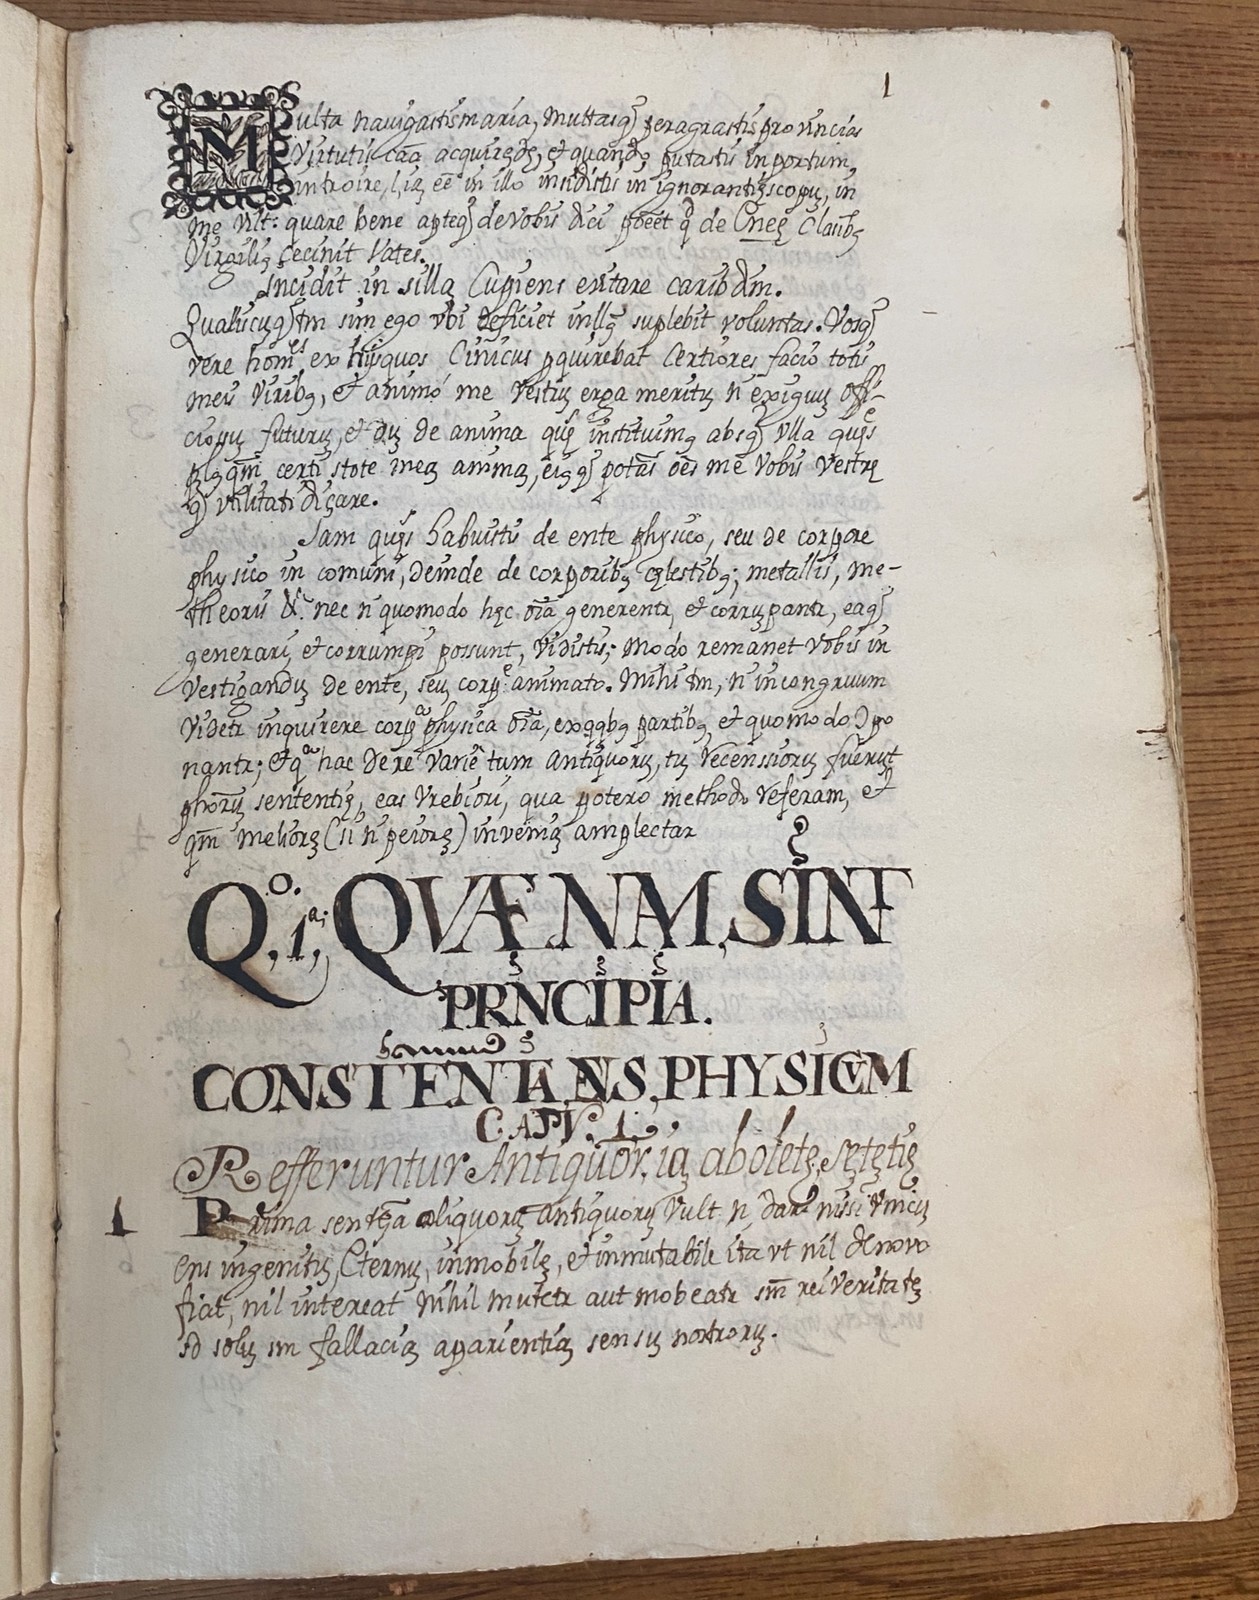 1
Multa navigastis maria, multasq peragrastis provincias
Virtutis cãa acquirẽdę, et quando putastis in portum
introire, in illo insidistis in ignorantię scopu, in
me vlt: quare bene apteq de vobis dici põeet q de Eneę Clasib9
Virgili9 cecinit Vates.
Incidit in silla Cupiens euitare caribdim.
Qualiscuq tm sim ego vbi deficiet suplebit voluntas. Vosq
vere homes ex hijs quos Cinicus pquirebat Certiores facio totis
meis Virib9, et animo me Vestris erga meritis ñ exiguu offi-
ciosu futuru, et de anima instituim9 absq vlla
certi stote mea anima, ei9q potas oẽs me vobis Vestrę
q vtilitati dicare.
Iam habuistis de ente physico, seu de corpore
physico in comuni, deinde de corporib9 cęlestib9; metallis, me-
theoris &c. nec ñ quomodo hęc oĩa generentr, et corrupantr, eaq
generari, et corrumpi possunt, vidistis; Modo remanet vobis in
vestigandu de ente, seu corpe animato. Mihi tm, ñ incongruum
videtr inquirere corpa physica oĩa, ex qqb9 partib9, et quomodo Ɔpo
nantr; et qa hac de re varie tum Antiquoru, tu recenssioru fuerut
phoru sententię, eas vrebiori, qua potero methodo referam, et
qm meliore (si ñ peiore) inveniã amplectar
Qo. 1a; QVÆNAM, SINT
PRNCIPIA.
CONSTITENTIA, ENS, PHYSICVM
CAPV. 1.
Refferuntur Antiquor, ia aboletę, sętętię
1 Prima sentẽa aliquoru antiquoru vult ñ dari nissi vnicu
ens ingenitu, Eternu, inmobile, et inmutabile ita vt nil de novo
fiat, nil intereat Nihil mutetr aut mobeatr sm rei veritate
sd solu sm fallacia aparientia sensu nostroru.